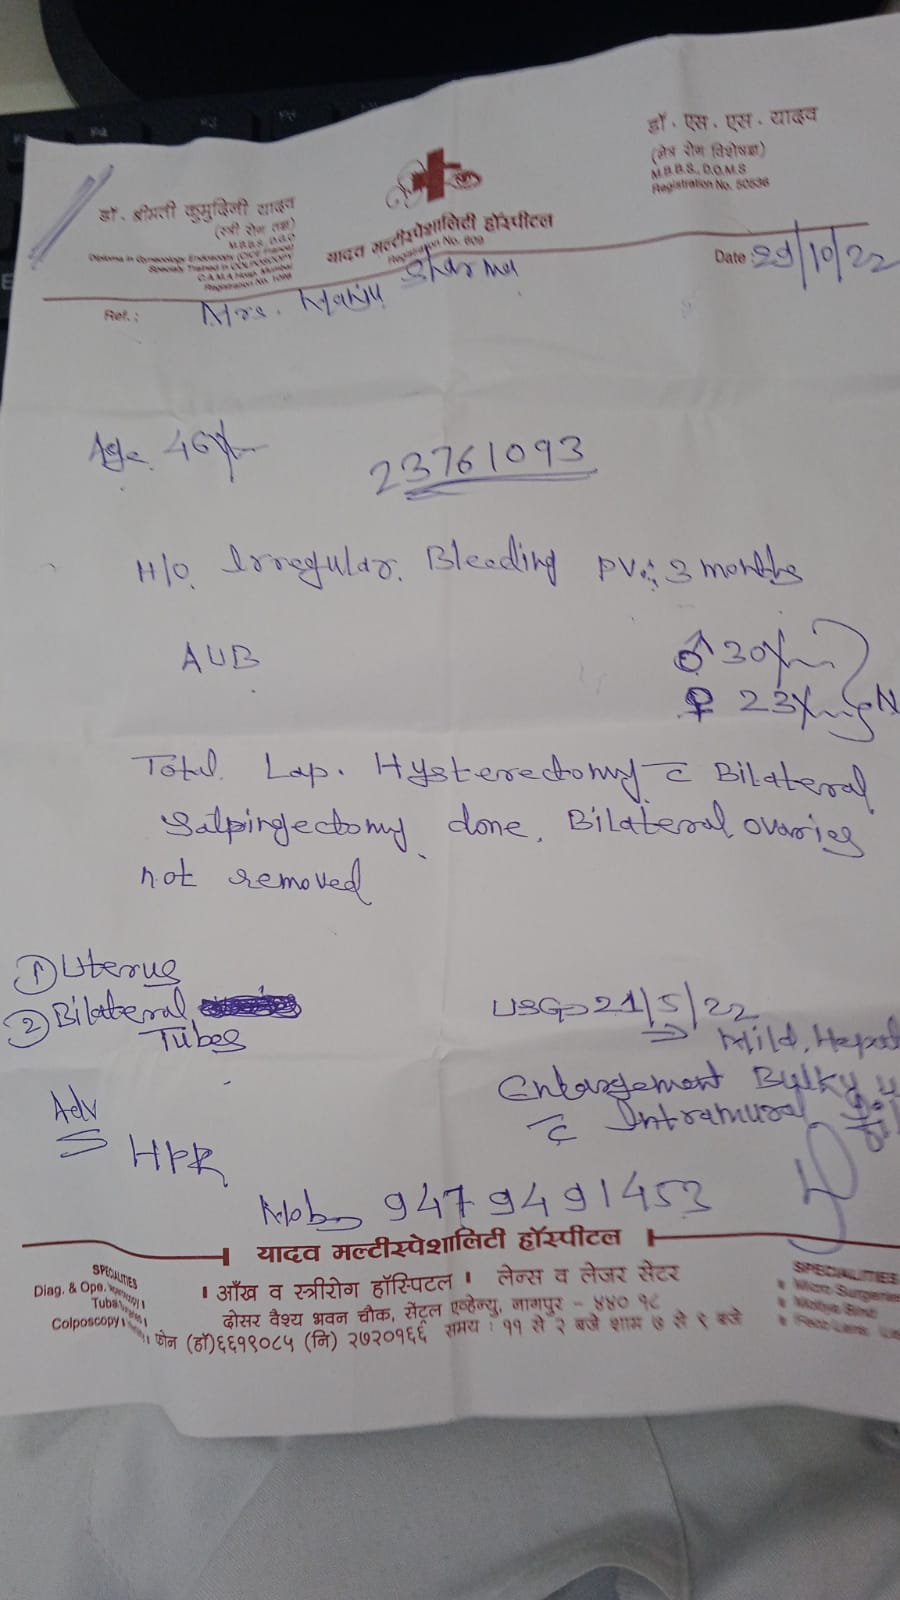 डॉ. श्रीमती कुमुदिनी यादव
(स्त्री रोग तज्ञ)
M.B.B.S., D.G.O
Diploma in Gynaecology Endoscopy (CICE France)
Specialy Trained in COLPOSCOPY
C.A.M.A Hosp. Mumbai
Registration No.
यादव मल्टीस्पेशालिटी हॉस्पीटल
Registration No. 609
डॉ. एस. एस. यादव
(नेत्र रोग विशेषज्ञ)
M.B.B.S., D.O.M.S
Registration No. 50536
Date : 29/10/22
Ref. : Mrs. Manju Sharma
Age 46
23761093
H/O Irregular Bleeding PV 3 months
AUB
♂ 30
♀ 23
Total Lap. Hysterectomy c̄ Bilateral
Salpingectomy done, Bilateral ovaries
not removed
① Uterus
② Bilateral
Tubes
USG 21/5/22
Mild. Hepat
Enlargement Bulky
c̄ Intramural
Adv
HPR
Mob 9479491453
यादव मल्टीस्पेशालिटी हॉस्पीटल
आँख व स्त्रीरोग हॉस्पिटल । लेन्स व लेजर सेंटर
दोसर वैश्य भवन चौक, सेंट्रल एव्हेन्यु, नागपुर - ४४० १८
फोन (हॉ) ६६१९०८५ (नि) २७२०१६६ समय : ११ से २ बजे शाम ७ से ९ बजे
SPECIALITIES
Diag. & Ope.
Tuba
Colposcopy
SPECIALITIES
Micro Surgeries